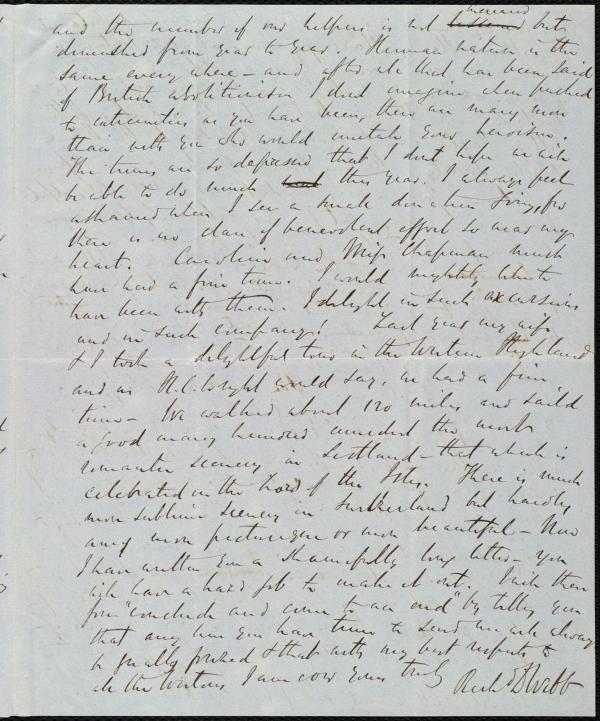 increased
and the number of our helpers is not lessened but
diminished from year to year. Human nature is the
same every where - and after all that has been said
of British abolitionism I dont imagine when pushed
to extremities as you have been, there are many more
than with you who would imitate your heroism.
The times are so depressed that I dont hope we will
be able to do much this year. I always feel
ashamed when I see a small donation from, for
there is no class of benevolent effort so near my
heart. Caroline and Miss Chapman must
have had a fine time. I would mightily like to
have been with them. I delight in such excursions
and in such company! Last year my wife
& I took a delightful tour in the Western Highlands
and as H. C. Wright would say, we had a fine
time - We walked about 120 miles and sailed
a good many hundred amidst the most
romantic scenery in Scotland - that which is
celebrated in the Lord of the Isles. There is much
more sublime scenery in Switzerland but hardly
any more picturesque or more beautiful - Now
I have written you a shamefully long letter - You
will have a hard job to make it out. I will then
fore "conclude and come to an end" by telling you
that any line you have time to send me will always
be greatly prized & that with my best respects to
all the Westons I am ever yours truly
Richd D Webb